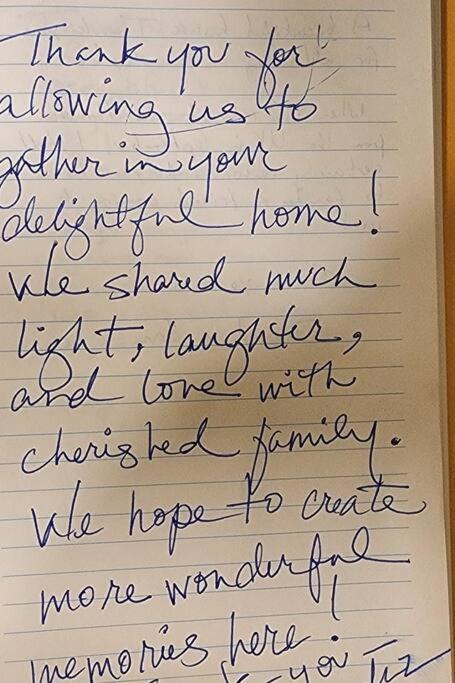 Thank you for
allowing us to
gather in your
delightful home!
We shared much
light, laughter,
and love with
cherished family.
We hope to create
more wonderful
memories here!
you